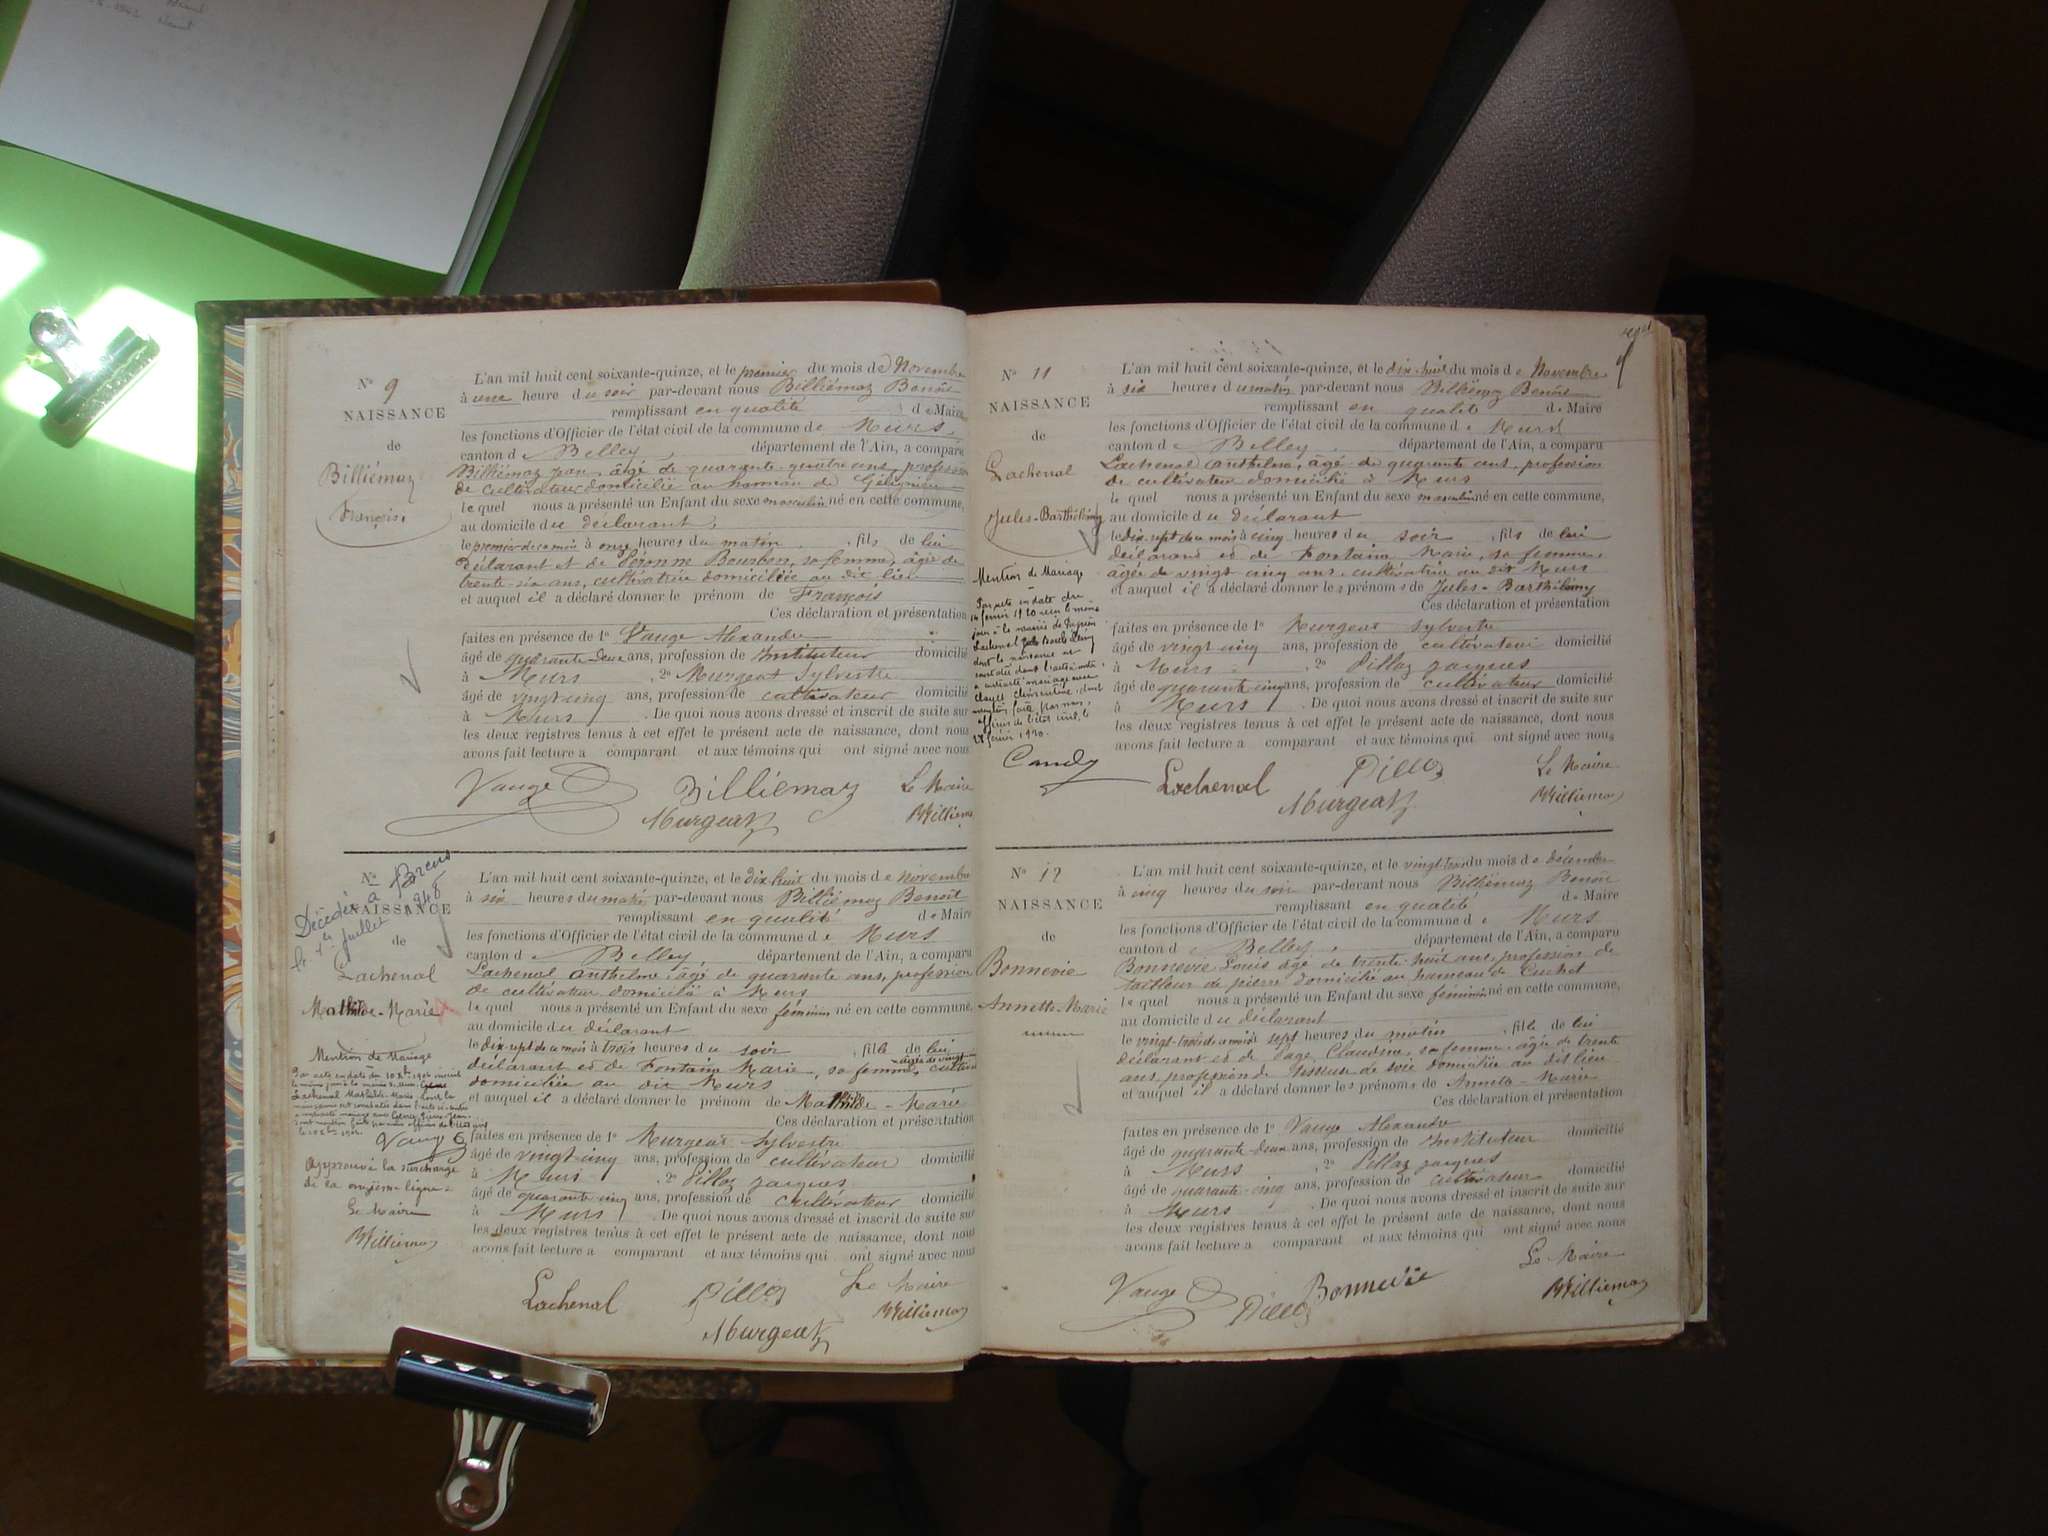 Nº 9
NAISSANCE
de
Billiémaz
François
L'an mil huit cent soixante-quinze, et le premier du mois de Novembre
à une heure du soir par-devant nous Billiémaz Benoît
remplissant en qualité de Maire
les fonctions d'Officier de l'état civil de la commune de Murs
canton de Belley, département de l'Ain, a comparu
Billiémaz Jean, âgé de quarante-quatre ans, profession
de cultivateur domicilié au hameau de Gélignieu
lequel nous a présenté un Enfant du sexe masculin né en cette commune,
au domicile du déclarant,
le premier de ce mois à onze heures du matin, fils de lui
déclarant et de Péronne Bourbon, sa femme, âgée de
trente-six ans, cultivatrice domiciliée au dit lieu
et auquel il a déclaré donner le prénom de François
Ces déclaration et présentation
faites en présence de 1º Vauge Alexandre
âgé de quarante-deux ans, profession de Instituteur domicilié
à Murs, 2º Murgeat Sylvestre
âgé de vingt cinq ans, profession de cultivateur domicilié
à Murs. De quoi nous avons dressé et inscrit de suite sur
les deux registres tenus à cet effet le présent acte de naissance, dont nous
avons fait lecture a comparant et aux témoins qui ont signé avec nous
Vauge Billiémaz Le Maire
Murgeat BBilliema
Nº
NAISSANCE
Décédée à
le 1er Juillet 1948
de
Lachenal
Mathilde-Marie
Mention de Mariage
Lachenal Mathilde-Marie
Vauge
Approuvé la surcharge
de la onzième ligne
Le Maire
BBilliemaz
L'an mil huit cent soixante-quinze, et le dix huit du mois de Novembre
à six heures du matin par-devant nous Billiémaz Benoît
remplissant en qualité de Maire
les fonctions d'Officier de l'état civil de la commune de Murs
canton de Belley, département de l'Ain, a comparu
Lachenal Anthelme, âgé de quarante ans, profession
de cultivateur domicilié à Murs
lequel nous a présenté un Enfant du sexe féminin né en cette commune,
au domicile du déclarant
le dix-sept de ce mois à trois heures du soir, fille de lui
déclarant et de Fontaine Marie, sa femme, âgée de vingt-
domiciliée au dit Murs
et auquel il a déclaré donner le prénom de Mathilde-Marie
Ces déclaration et présentation
faites en présence de 1º Murgeat Sylvestre
âgé de vingt-cinq ans, profession de cultivateur domicilié
à Murs, 2º Pillaz Jacques
âgé de quarante cinq ans, profession de cultivateur domicilié
à Murs. De quoi nous avons dressé et inscrit de suite sur
les deux registres tenus à cet effet le présent acte de naissance, dont nous
avons fait lecture a comparant et aux témoins qui ont signé avec nous
Lachenal Pillaz Le Maire
Murgeat BBilliemaz
Nº 11
NAISSANCE
de
Lachenal
Jules-Barthélemy
Mention de Mariage
Par acte en date du
Lachenal Jules Barthélemy
dont la naissance est
constatée dans l'acte ci-contre
a contracté mariage avec
Clayet Clémentine, dont
mention faite par nous,
officier de l'état civil, le
Candy
L'an mil huit cent soixante-quinze, et le dix-huit du mois de Novembre
à six heures du matin par-devant nous Billiémaz Benoît
remplissant en qualité de Maire
les fonctions d'Officier de l'état civil de la commune de Murs
canton de Belley, département de l'Ain, a comparu
Lachenal Anthelme, âgé de quarante ans, profession
de cultivateur domicilié à Murs
lequel nous a présenté un Enfant du sexe masculin né en cette commune,
au domicile du déclarant
le dix-sept de ce mois à cinq heures du soir, fils de lui
déclarant et de Fontaine Marie, sa femme,
âgée de vingt-cinq ans cultivatrice au dit Murs
et auquel il a déclaré donner les prénoms de Jules-Barthélemy
Ces déclaration et présentation
faites en présence de 1º Murgeat Sylvestre
âgé de vingt cinq ans, profession de cultivateur domicilié
à Murs, 2º Pillaz Jacques
âgé de quarante cinq ans, profession de cultivateur domicilié
à Murs. De quoi nous avons dressé et inscrit de suite sur
les deux registres tenus à cet effet le présent acte de naissance, dont nous
avons fait lecture a comparant et aux témoins qui ont signé avec nous
Lachenal Pillaz Le Maire
Murgeat BBilliemaz
Nº 12
NAISSANCE
de
Bonnevie
Annette-Marie
L'an mil huit cent soixante-quinze, et le vingt-trois du mois de décembre
à cinq heures du soir par-devant nous Billiémaz Benoît
remplissant en qualité de Maire
les fonctions d'Officier de l'état civil de la commune de Murs
canton de Belley, département de l'Ain, a comparu
Bonnevie Louis âgé de trente-huit ans, profession de
tailleur de pierre domicilié au hameau de Cuchet
lequel nous a présenté un Enfant du sexe féminin né en cette commune,
au domicile du déclarant
le vingt-trois de ce mois à sept heures du matin, fille de lui
déclarant et de Page Claudine, sa femme, âgée de trente
ans, profession de tisseuse de soie domiciliée au dit lieu
et auquel il a déclaré donner les prénoms de Annette-Marie
Ces déclaration et présentation
faites en présence de 1º Vauge Alexandre
âgé de quarante-deux ans, profession de Instituteur domicilié
à Murs, 2º Pillaz Jacques
âgé de quarante-cinq ans, profession de cultivateur domicilié
à Murs. De quoi nous avons dressé et inscrit de suite sur
les deux registres tenus à cet effet le présent acte de naissance, dont nous
avons fait lecture a comparant et aux témoins qui ont signé avec nous
Vauge Pillaz Bonnevie Le Maire
BBilliemaz